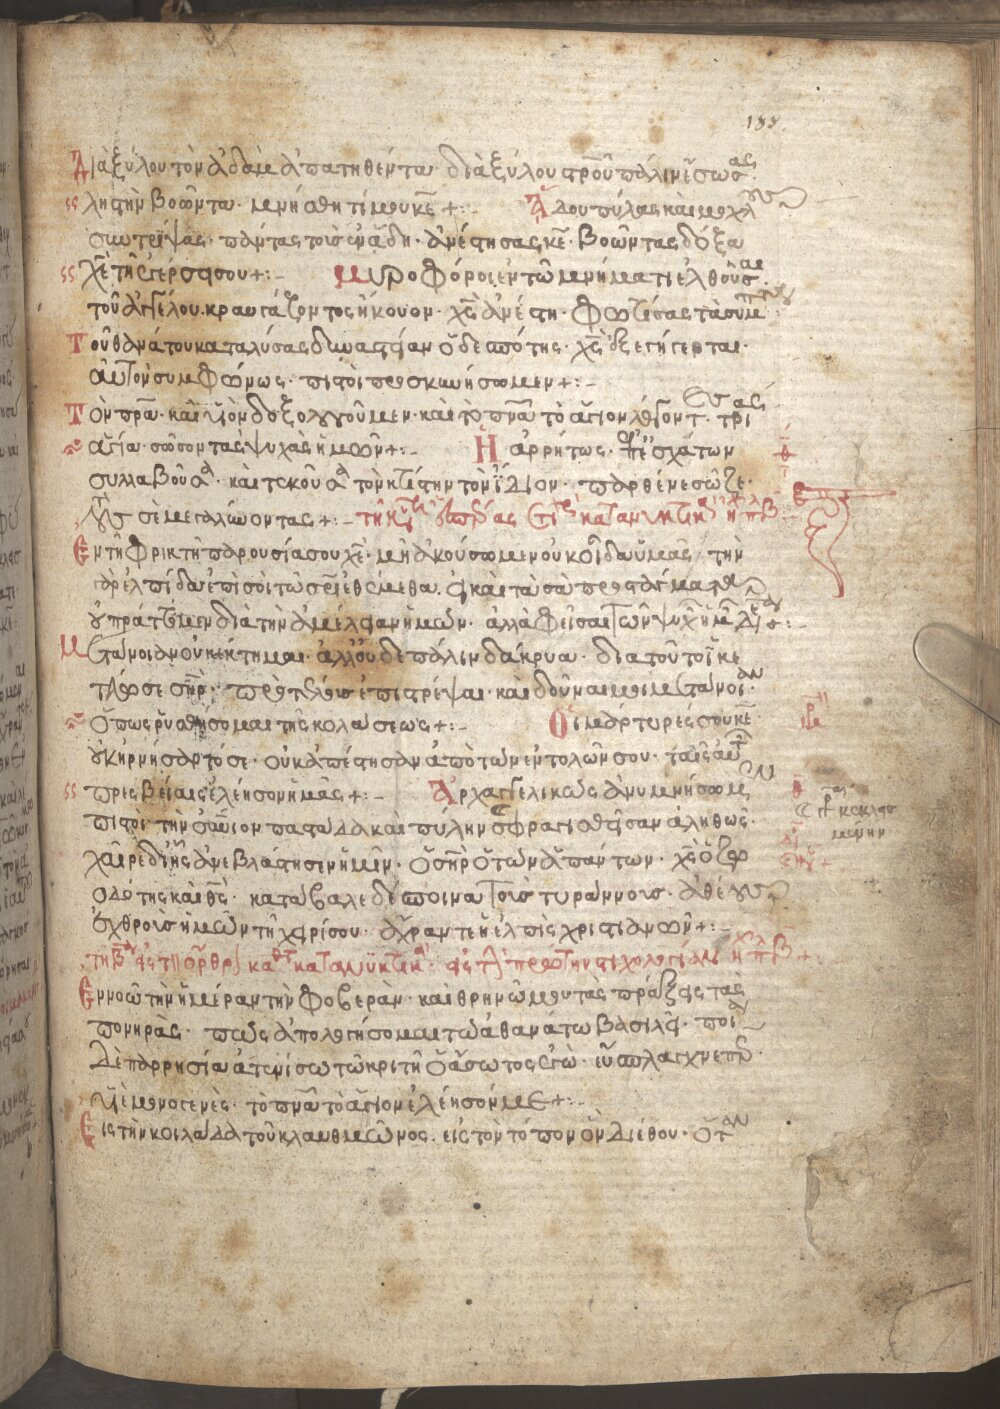 133
Διὰ ξύλου τὸν ἀδὰμ ἀπατηθέντα· διὰ ξύλου στ̅ρο̅υ̅ πάλιν ἔσωσας·
ληστὴν βοῶντα· μνήσθητί μου κ̅ε̅ +:– Ἅδου πύλας καὶ μοχλοὺς
συντρίψας· πάντας τοὺς ἐν ἅδη· ἀνέστησας κ̅ε̅· βοῶντας δόξα
χ̅ε̅ τῆ ἐγέρσει σου +:– Μυροφόροι ἐν τῶ μνήματι ἐλθοῦσαι
τοῦ ἀγγέλου κραυγάζοντος ἤκουον· χ̅ς̅ ἀνέστη· φωτίσας τὰ σύμπαντα
Τοῦ θανάτου καταλύσας δυναστείαν ὁ δεσπότης· χ̅ς̅ ἐξεγήγερται·
αὐτὸν συμφώνως· πιστοὶ προσκυνήσωμεν +:–
Τὸν π̅ρ̅α̅· καὶ υἱὸν δοξολογοῦμεν· καὶ τὸ π̅ν̅α̅ τὸ ἅγιον λέγοντες· τριὰς
ἁγία· σῶσον τὰς ψυχὰς ἡμῶν +:– Ἡ ἀρρήτως· ἐπ' ἐσχάτων
συλλαβοῦσα· καὶ τεκοῦσα τὸν κτίστην τὸν ἴδιον· παρθένε σῶζε·
τοὺς σὲ μεγαλύνοντας +:–
Ἐν τῆ φρικτῆ παρουσία σου χ̅ε̅· μὴ ἀκούσωμεν οὐκ οἶδα ὑμᾶς· τὴν
γὰρ ἐλπίδα ἐπὶ σοὶ τῶ σ̅ρ̅ι̅ ἐθέμεθα· εἰ καὶ τὰ σὰ προστάγματα
οὐ πράττομεν διὰ τὴν ἀμέλειαν ἡμῶν· ἀλλὰ φεῖσαι τῶν ψυχῶν ἡμῶν
Μετάνοιαν οὐ κέκτημαι· ἀλλ' οὐδὲ πάλιν δάκρυα· διὰ τοῦτο ἱκε
τεύω σε σ̅ε̅ρ̅· πρὸ τέλους ἐπιστρέψαι· καὶ δοῦναι μοι μετάνοιαν·
ὅπως ῥυσθήσομαι τῆς κολάσεως +:– Οἱ μάρτυρές σου κ̅ε̅
οὐκ ἠρνήσαντό σε· οὐκ ἀπέστησαν ἀπὸ τῶν ἐντολῶν σου· ταῖς αὐτῶν
πρεσβείαις ἐλέησον ἡμᾶς +:– Ἀρχαγγελικῶς ἀνυμνήσωμεν
πιστοὶ· τὴν οὐράνιον παστάδα καὶ πύλην ἐσφραγισθεῖσαν ἀληθῶς·
χαῖρε δι' ἧς ἀνεβλάστησεν ἡμῖν· ὁ σ̅η̅ρ̅ ὁ τῶν ἁπάντων· χ̅ς̅ ὁ ζω
οδότης καὶ θ̅ς̅· κατάβαλε δέσποινα τοὺς τυράννους· ἀθέους
ἐχθροὺς ἡμῶν τῆ χειρί σου· ἄχραντε ἡ ἐλπὶς χριστιανῶν +:–
Ἐννοῶ τὴν ἡμέραν τὴν φοβεράν· καὶ θρηνῶ μου τὰς πράξεις τὰς
πονηράς· πῶς ἀπολογήσομαι τῶ ἀθανάτω βασιλεῖ· ποία
δὲ παρρησία ἀτενίσω τῶ κριτῆ ὁ ἄσωτος ἐγώ· εὔσπλαγχνε π̅ε̅ρ̅·
υἱὲ μονογενὲς· τὸ π̅ν̅α̅ τὸ ἅγιον ἐλέησόν με +:–
Εἰς τὴν κοιλάδα τοῦ κλαυθμῶνος· εἰς τὸν τόπον ὃν διέθου· ὅταν